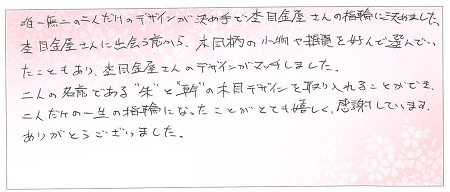 唯一無二の二人だけのデザインが決め手で杢目金屋さんの指輪に決めました。
杢目金屋さんに出会う前から、木目柄の小物や雑貨を好んで選んでい
たこともあり、杢目金屋さんのデザインがマッチしました。
二人の名前である"朱"と"幹"の木目デザインを取り入れることができ、
二人だけの一生の指輪になったことがとても嬉しく、感謝しています。
ありがとうございました。